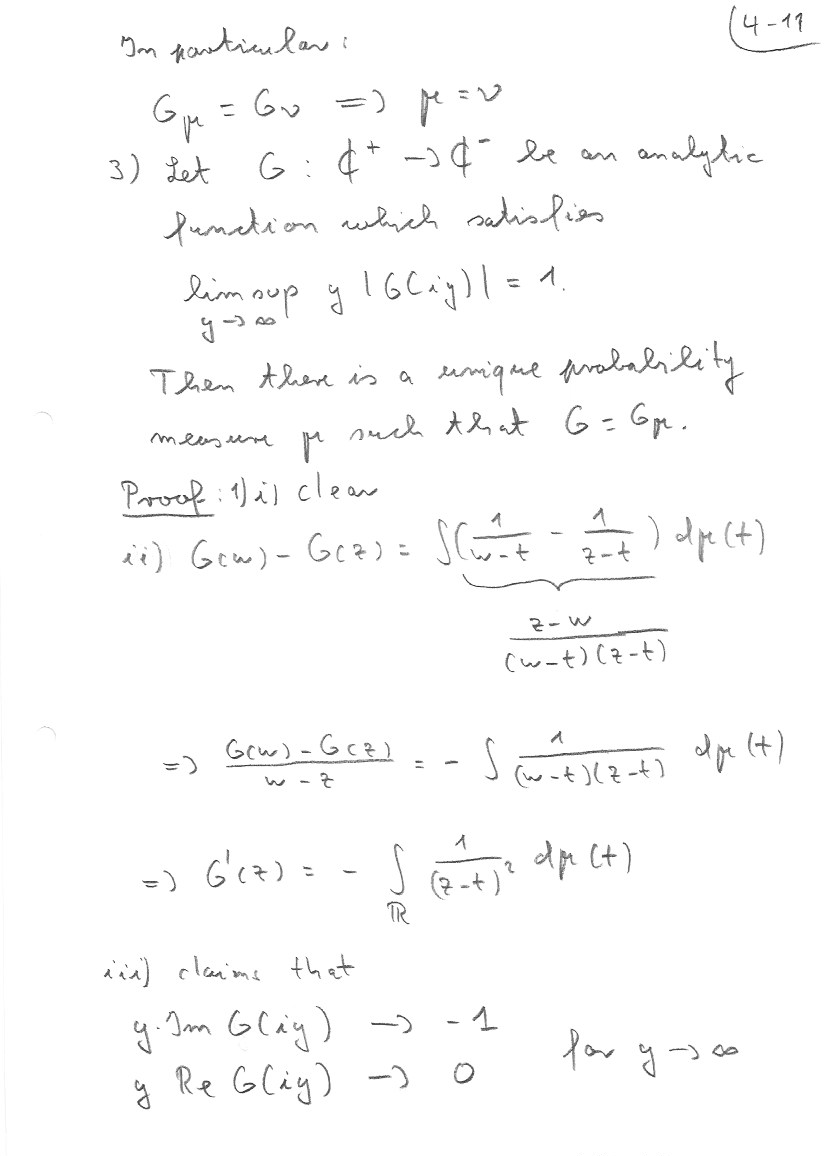 4-11
In particular:
G_μ = G_ν => μ = ν
3) Let G : ℂ⁺ → ℂ⁻ be an analytic
function which satisfies
lim sup y |G(iy)| = 1.
y→∞
Then there is a unique probability
measure μ such that G = G_μ.
Proof: 1) i) clear
ii) G(w) - G(z) = ∫( 1/(w-t) - 1/(z-t) ) dμ(t)
(z-w)/((w-t)(z-t))
=> (G(w) - G(z))/(w - z) = - ∫ 1/((w-t)(z-t)) dμ(t)
=> G'(z) = - ∫_ℝ 1/(z-t)² dμ(t)
iii) claims that
y·Im G(iy) → -1
for y→∞
y Re G(iy) → 0